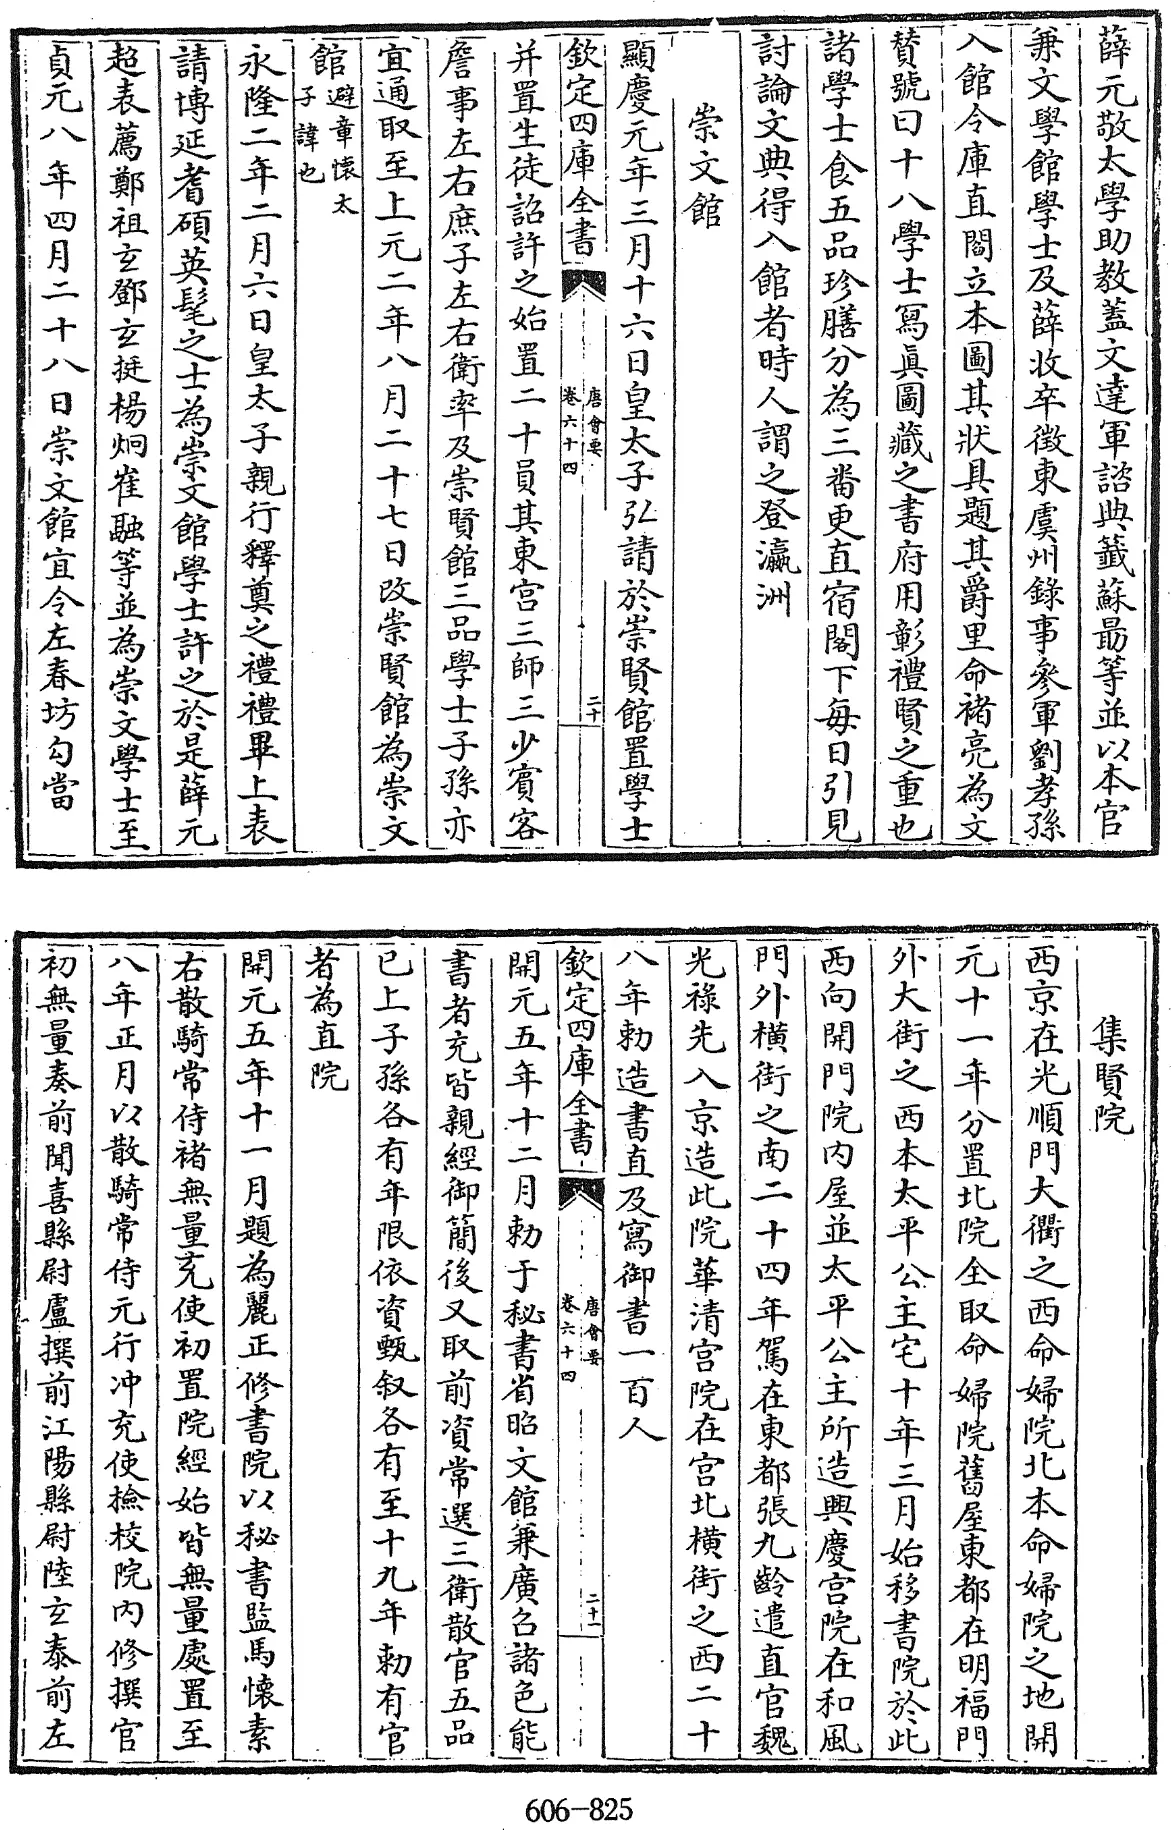 薛元敬太學助教蓋文達軍諮典籖蘇勗等並以本官
兼文學館學士及薛收卒徴東虞州錄事參軍劉孝孫
入館令庫直閻立本圖其狀具題其爵里命褚亮為文
賛號曰十八學士寫眞圖藏之書府用彰禮賢之重也
諸學士食五品珍膳分為三番更直宿閣下每日引見
討論文典得入館者時人謂之登瀛洲
崇文館
顯慶元年三月十六日皇太子弘請於崇賢館置學士
欽定四庫全書
唐會要
卷六十四
二十
并置生徒詔許之始置二十員其東宫三師三少賓客
詹事左右庶子左右衛率及崇賢館三品學士子孫亦
宜通取至上元二年八月二十七日改崇賢館為崇文
館避章懷太
子諱也
永隆二年二月六日皇太子親行釋奠之禮禮畢上表
請博延耆碩英髦之士為崇文館學士許之於是薛元
超表薦鄭祖玄鄧玄挺楊炯崔融等並為崇文學士至
貞元八年四月二十八日崇文館宜令左春坊勾當
集賢院
西京在光順門大衢之西命婦院北本命婦院之地開
元十一年分置北院全取命婦院舊屋東都在明福門
外大街之西本太平公主宅十年三月始移書院於此
西向開門院内屋並太平公主所造興慶宫院在和風
門外橫街之南二十四年駕在東都張九齡遣直官魏
光祿先入京造此院華清宫院在宫北橫街之西二十
八年勅造書直及寫御書一百人
欽定四庫全書
唐會要
卷六十四
二十一
開元五年十二月勅于秘書省昭文館兼廣召諸色能
書者充皆親經御簡後又取前資常選三衛散官五品
已上子孫各有年限依資甄叙各有至十九年勅有官
者為直院
開元五年十一月題為麗正修書院以秘書監馬懷素
右散騎常侍褚無量充使初置院經始皆無量處置至
八年正月以散騎常侍元行冲充使撿校院内修撰官
初無量奏前聞喜縣尉盧撰前江陽縣尉陸玄泰前左
606-825